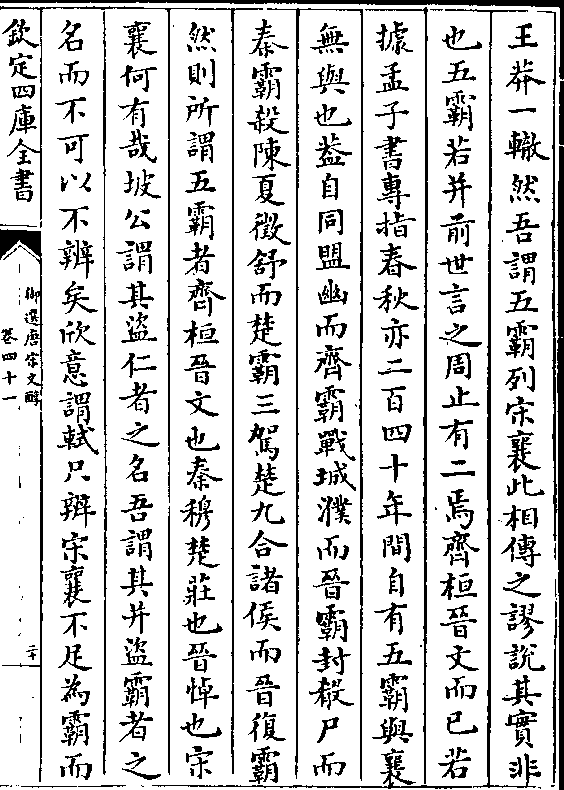 王莽一轍然吾謂五霸列宋襄此相傳之謬說其實非
也五霸若并前世言之周止有二焉齊桓晉文而已若
據孟子書專指春秋亦二百四十年間自有五霸與襄
無與也葢自同盟幽而齊霸戰城濮而晉霸封殽尸而
秦霸殺陳夏徵舒而楚霸三駕楚九合諸侯而晉復霸
然則所謂五霸者齊桓晉文也秦穆楚莊也晉悼也宋
襄何有哉坡公謂其盜仁者之名吾謂其并盜霸者之
名而不可以不辨矣欣意謂軾只辨宋襄不足為霸而
欽定四庫全書
御選唐宋文醇
卷四十一
二十